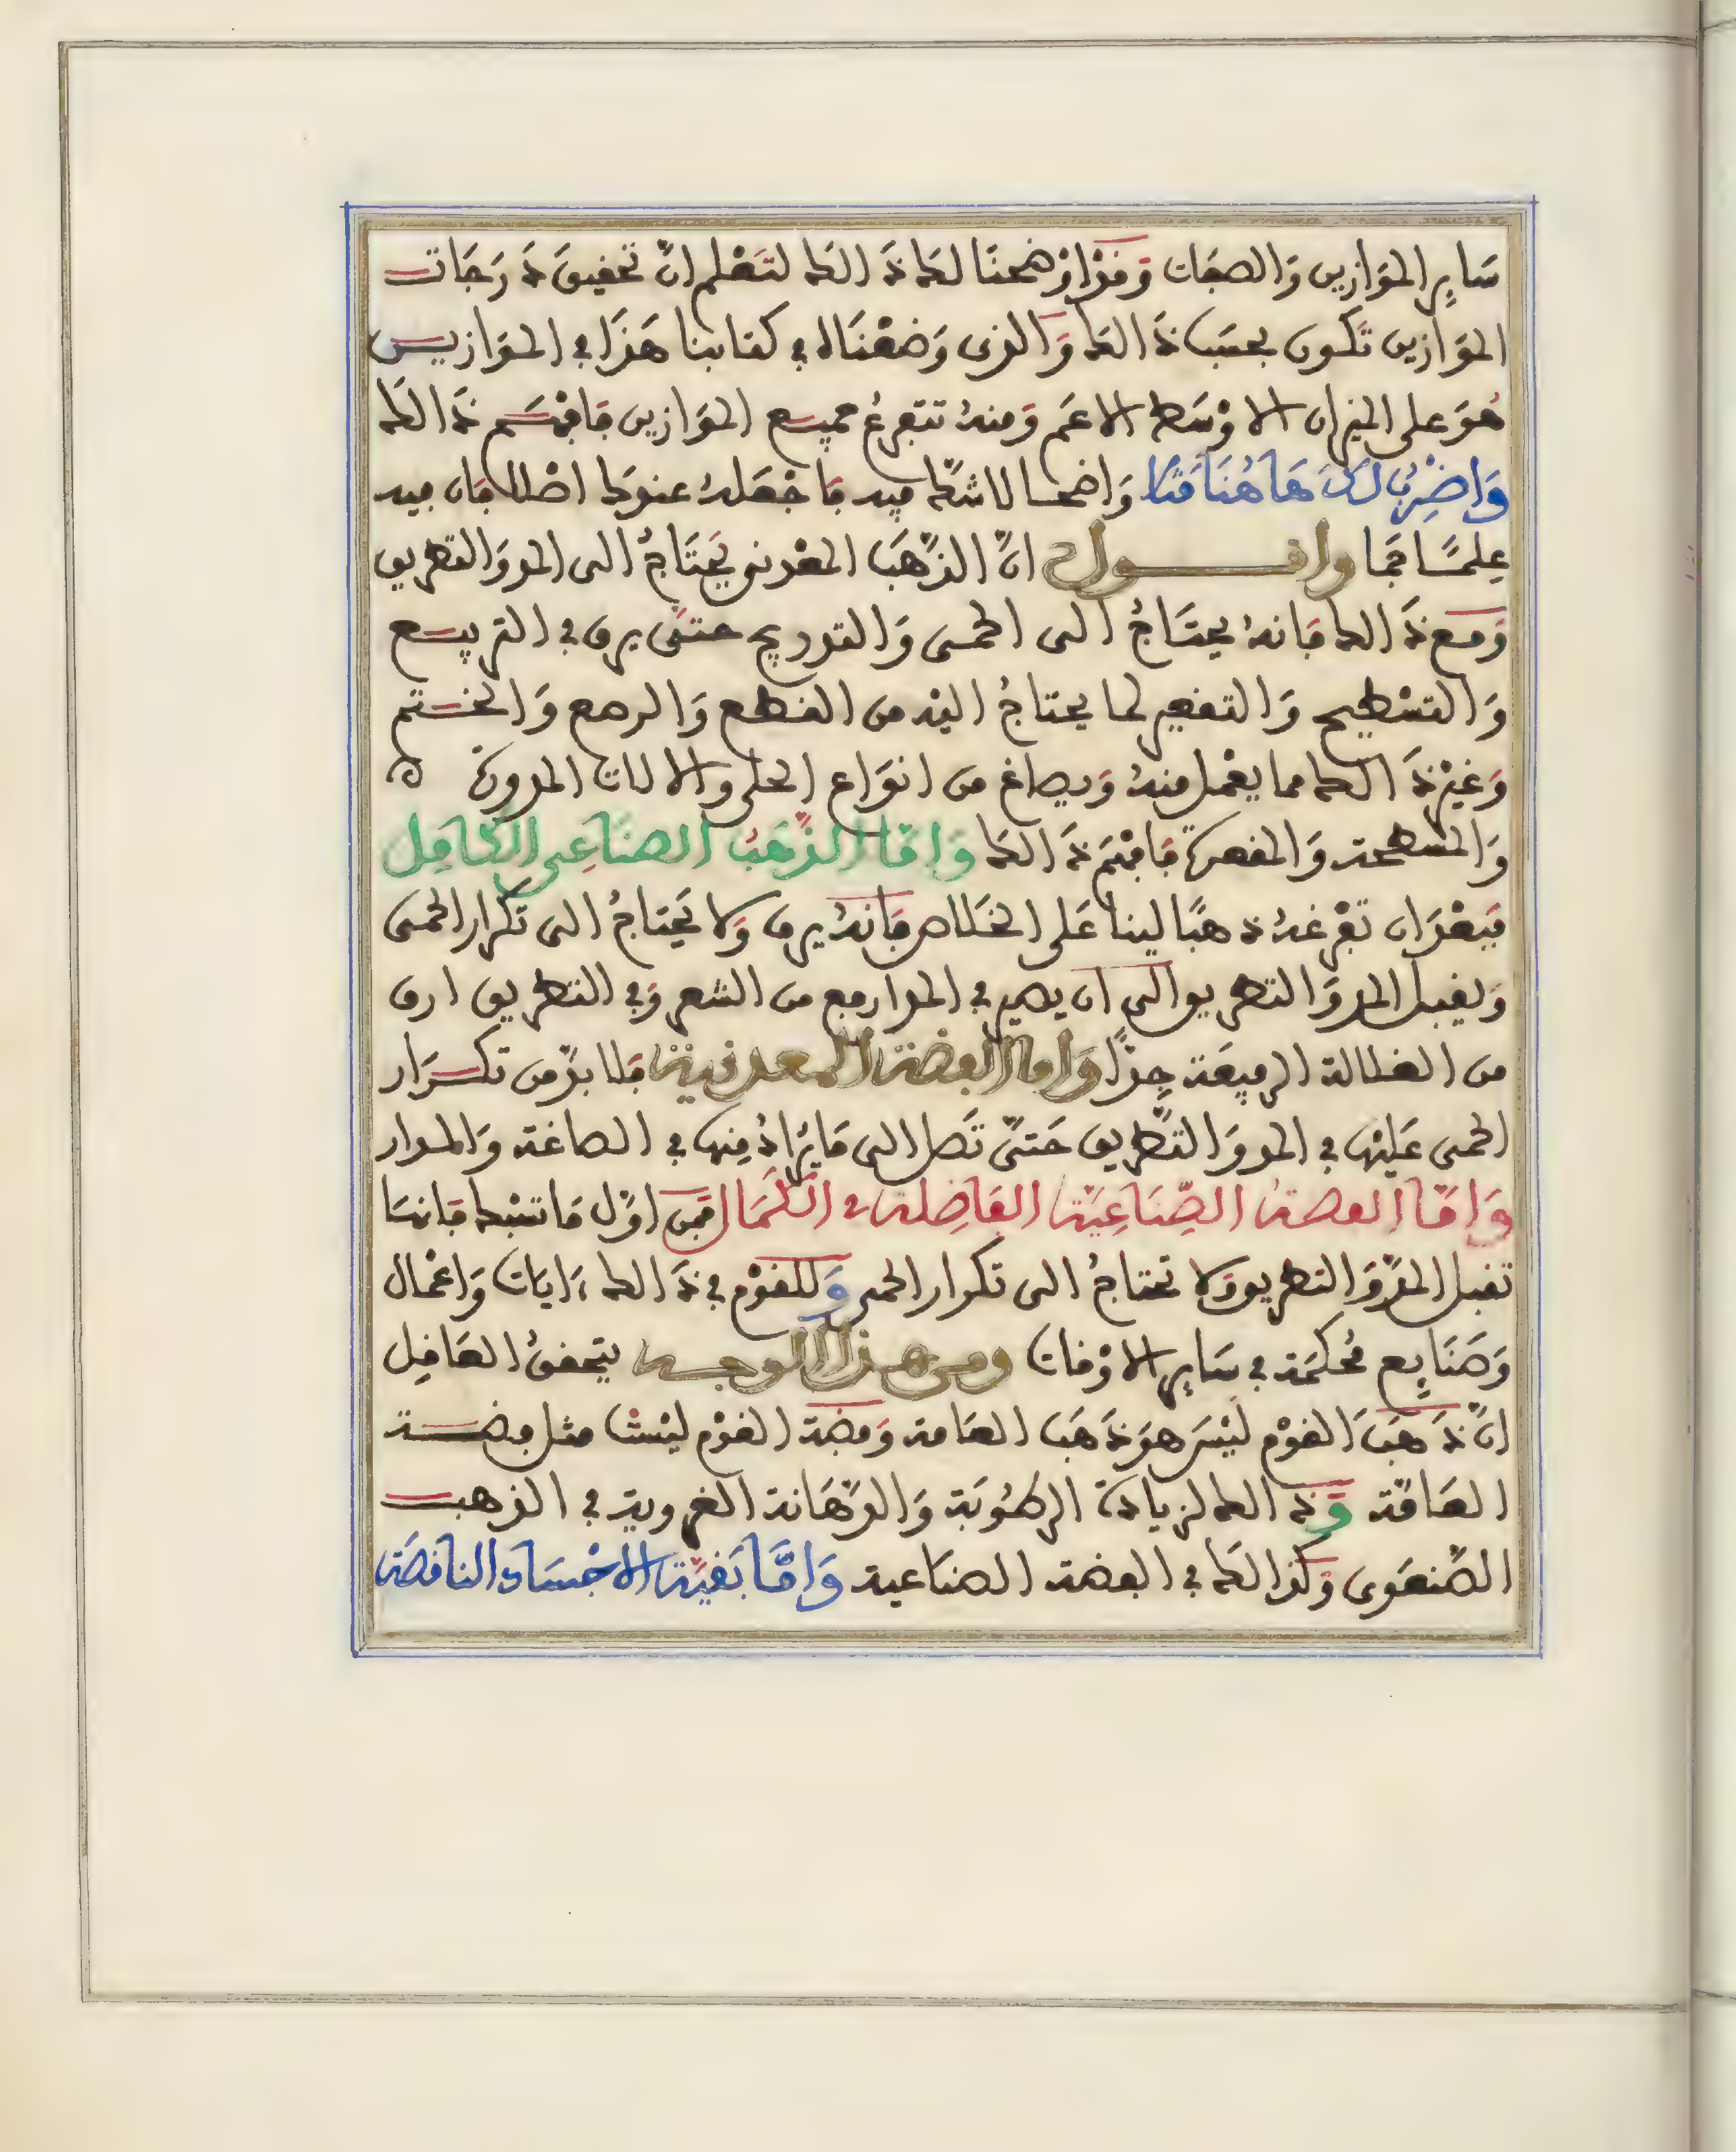 سَايِر الموَازين وَالصفَات وَقدْ اوْضحنَا لك ذَالك لتَعْلم انّ تحقيقَ دَرَجَات
الموَازين تكون بحسَب ذَالك وَالذى وَضعْنَاه في كتابنا هَذَا في الموَازيـن
هُوَ على الميزان الاوْسَط الاعَم وَمنهُ تتفرعُ جميـع الموَازين فَافهَـم ذَالك
وَاضْرِبُ لَكَ هَاهُنَا مَثلا وَاضحـا لا شكّ فيه فَاجْعَلهُ عندك اصْلا فان فيه
عِلمـًا جَما واقـــول انّ الذّهَبَ المعْدني يَحتَاجُ الى المد وَالتطريق
وَمـع ذَالك فَانهُ يحتَاجُ الى الحمـى وَالتدريج حتى يرق في التربيـع
وَالتسْطيح وَالتقعير لما يحتاجُ اليْه من القطع وَالرصع وَالخـتم
وَغيْر ذَالك مما يعْمل منهُ وَيصاغ من انوَاع الحلى والالات المدورة ه
وَالمسطحة وَالمقعرة فَافهَم ذَالك وَامَّا الذّهَبُ الصنَاعِى الكَامِل
فَبعْدَ ان تفْرغهُ ذهبًا لينا عَلى الخلَاص فَانهُ يرق وَلا يَحتَاجُ الى تكرار الحمى
وَيقبل المد وَالتطريق الى ان يصير في المد ارفع من الشعر وَفي التطريق ارق
من الغلالة الرفيعَة جِدًّا وَاما الفضة المعدنية فلا بدّ من تكـرَار
الحمى عَليْها في المد وَالتطريق حَتىّ تَصل الى مَا يُرَادُ مِنها في الصاغة وَالمدار
وَامَّا الفضةُ الصِّنَاعِيّة الفَاضِلة في الكَمَال فمِن اوّل مَا تسْبك فَانهَا
تقبل المدّ وَالتطريق وَلا تحتاجُ الى تكرار الحمى وَللقوْم في ذَالك ءَايات وَاعْمال
وَصَنَايِع مُحكمَة في سَايِر الاوْقات ومن هـذا الوجــه يتحققُ العَاقِل
انّ ذَهَبَ القوْم ليْسَ هوَ ذَهَب العَامة وَفضَة القوْم ليْسَت مثل فضــة
العَامّة وَذَالك لزيادة الرطُوبَة وَالدّهَانة الغروية في الذهب
الصّنعَوى وَكذالك في الفضة الصنَاعية وَامَّا بَقيّة الاجْسَاد الناقصَة